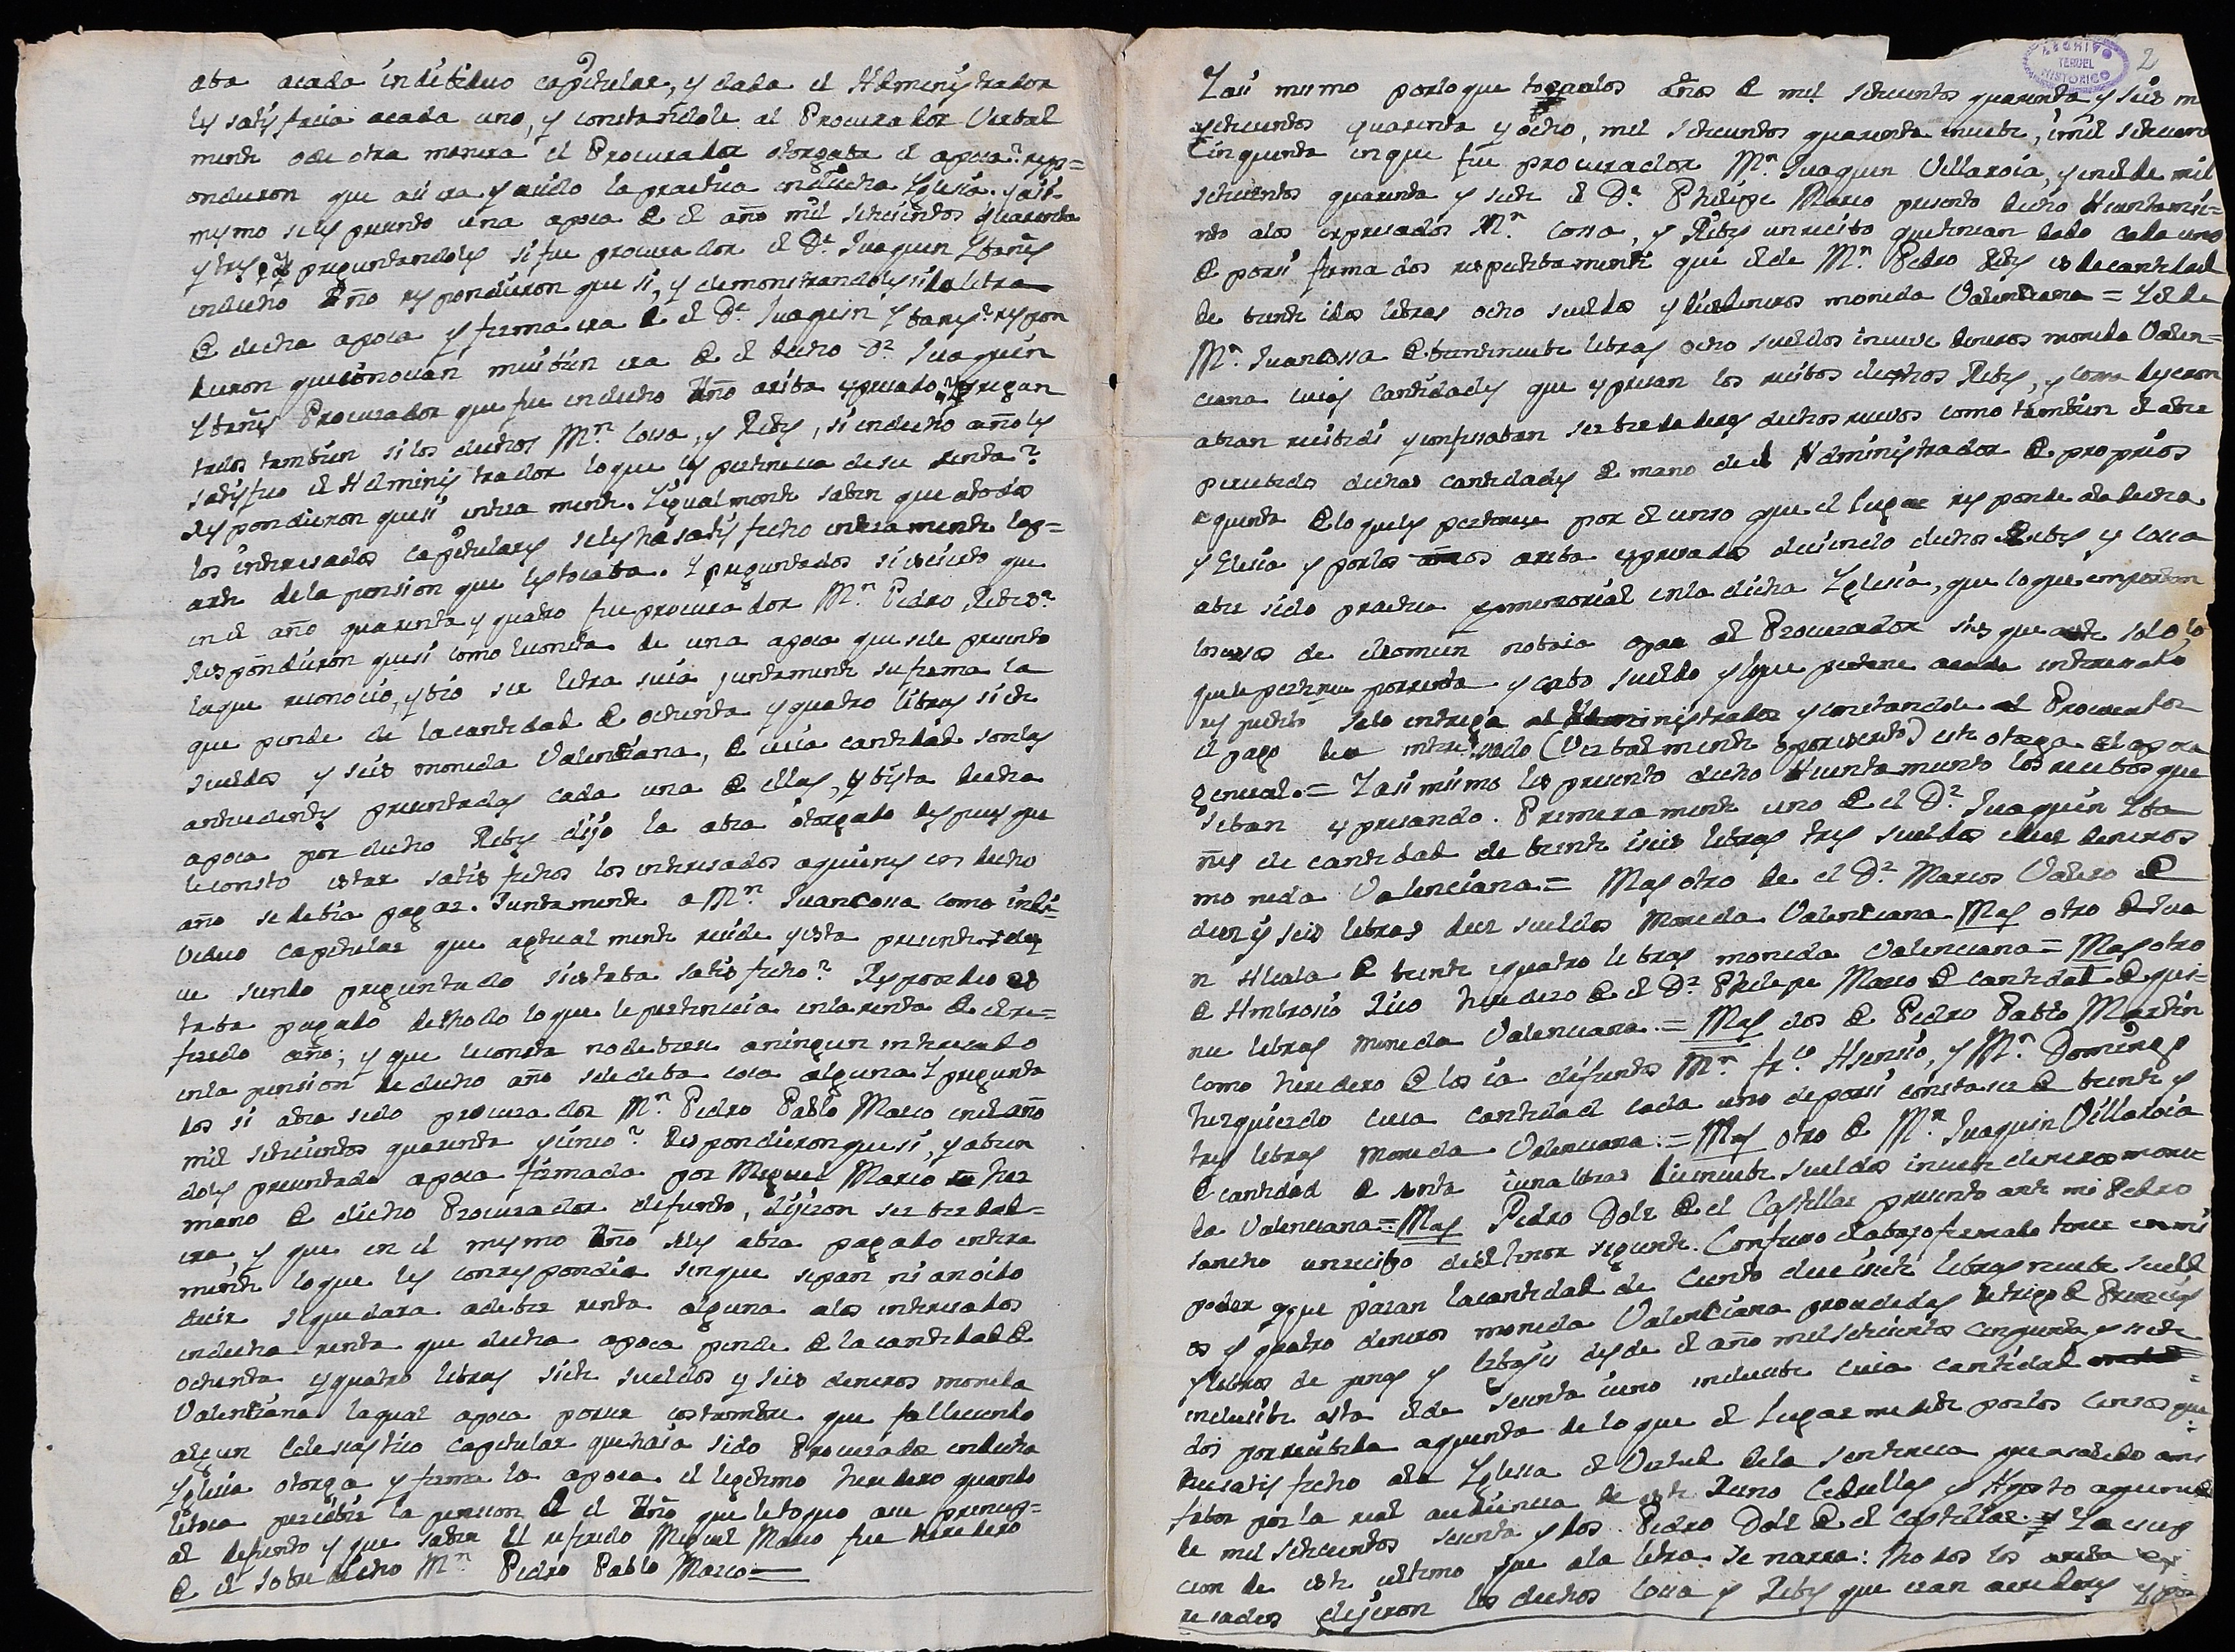 aba acada indibiduo capitular, y dada el Administrador
les satisfacia acada uno, y constandole al Procurador Verbal
mente o de otra manera el Procurador otorgaba el apoca? resp=
ondieron que asi era y asido la practica en dicha Yglesia. y asi
mysmo seles presento una apoca de el año mil setecientos quarenta
y tres preguntandoles si fue procurador el Dr. Juaquin Ybañes
en dicho Año respondieron que si, y demonstrandoles si la letra
de dicha apoca y firma era de el Dr. Juaquin Ybanes? respon
dieron que conocian mui bien era de el dicho Dr. Juaquin
Ybañes Procurador que fue en dicho Año ariba espresado. Y pregun
tados tambien si los dichos Mn. Cossa, y Rebes, si en dicho año les
satisfiço el Adminis trador lo que les pertenecia de su renta?
Respondieron que si entera mente. Ygualmente saben que atodos
los interesados capitulares seles ha satisfecho entera mente la p=
arte de la pension que les tocaba. Y preguntados si es cierto que
en el año quarenta y quatro fue procurador Mn. Pedro Rebes?
Respondieron que si como leconsta de una apoca que sele presento
la que reconocio, y bio ser letra suia juntamente su firma la
que pende de la cantidad de ochenta y quatro libras siete
sueldos y seis moneda Valenciana, de cuia cantidad son las
antecedentes presentadas cada una de ellas, y bista decha
apoca por dicho Rebes dijo la abia otorgado despues que
le consto estar satisfechos los interesados aquienes en decho
año se debia pagar. Juntamente a Mn. Juan Cossa como indi=
viduo capitular que actual mente reside y esta presente
siendo preguntado si estaba satisfecho? Respondio es
taba pagado de todo lo que le pertenecia en la renta de el re=
ferido año; y que le consta no deberse a ningun interesado
en la pension de dicho año sele deba cosa alguna. Y pregunta
dos si abia sido procurador Mn. Pedro Pablo Marco en el año
mil setecientos quarenta y cinco? Respondieron que si, y abien
doles presentado apoca firmada por Miguel Marco su her
mano de dicho Procurador defunto, dijeron ser berdad=
era y que en el mysmo Año seles abia pagado entera
mente lo que les correspondia sin que sepan ni an oido
decir se quedara adeber renta alguna alos interesados
en decha renta que decha apoca pende de la cantidad de
ochenta y quatro libras siete sueldos y seis deneros moneda
Valenciana la qual apoca por ser costumbre que falleciendo
algun Eclesiastico capitular que haia sido Procurador en decha
Yglesia otorga y firma la apoca el legitimo heredero quando
letoca percibir la pension de el Año que letoque
al defunto y que saben el referido Miguel Marco fue heredero
de el sobre dicho Mn. Pedro Pablo Marco
ARCHIVO
TERUEL
HISTORICO
2
Y asi mismo por lo que toca a los años de mil setecientos quarenta y seis m
setecientos quarenta y ocho, mil setecientos quarenta inuebe, imil setecien
Cinquenta en que fue procurador Mn. Juaquin Villaroia, y en el de mil
setecientos quarenta y siete el Dr. Phelipe Marco presento dicho Aiuntamie=
nto alos espresados Mn. Cossa, y Rebes un recibo que tenian dado cada uno
de por si firmados respectibamente que el de Mn. Pedro Rebes es de cantidad
de beinte idos libras ocho sueldos y diez deneros moneda Valenciana = Y el de
Mn. Juan Cossa de beintinuebe libras ocho sueldos inueve deneros moneda Valen=
ciana cuias cantidades que espresan los recibos dechos Rebes, y Cossa dejeron
abian recibidi y confesaban ser berdaderos dichos recivos como tambien el aber
percebido dichas cantidades de mano de el Administrador de proprios
aquenta de lo que les pertenece por el censo que el lugar responde ala decha
Yglesia y por los años ariba espresados deciendo dichos Rebes y Cossa
aber sido practica ynmemorial en la dicha Yglesia, que lo que importan
los censos de el comun notaia apar al Procurador sino que ante solo lo
que le pertenece por renta y cabo sueldo y lo que pertene acada interesado
respecto selo entrega al Administrador y constandole al Procurador
el pago de interesado (Verbal mente o por escrito) este otorga el apoca
general. = Y asi mismo les presento decho Aiuntamiento los recibos que
se ban espresando. Primera mente uno de el Dr. Juaquin Yba
ñes de cantidad de beinte iseis libras tres sueldos i diez deneros
mo neda Valenciana = Mas otro de el Dr. Marcos Valero de
diez y seis libras diez sueldos Moneda Valenciana Mas otro de Jua
n Alcala de beinte iquatro libras moneda Valenciana = Mas otro
de Ambrosio Rico heredero de el Dr. Phelepe Marco de cantidad de qui=
nce libras moneda Valenciana = Mas dos de Pedro Pablo Martin
como heredero de los ia defuntos Mn. Frco. Asensio, y Mn. Domingo
Hezquierdo cuia cantidad cada uno de por si consta ser de beinte y
tres libras moneda Valenciana = Mas otro de Mn. Juaquin Villaroia
de cantidad de senta iuna libras diezinuebe sueldos inuebe deneros mone
da Valenciana = Mas Pedro Dolz de el Castellar presento ante mi Pedro
Sancho un recibo de el tenor seguente. Confieso el abajo firmado tener en mi
poder que paran la cantidad de Ciento deecisiete libras nuebe sueld
os y quatro deneros moneda Valenciana procedidas de trigo de Primicias
y libros de jenos y desde el año mil setecientos cinquenta y siete
inclusibe asta el de sesenta iuno inclusibe cuia cantidad
dos por recibida aquenta de lo que el Lugar me debe por los Censos que
he satisfecho ala Yglesia en Virtud de la Sentencia que asalido ami
fabor por la real audiencia de este Reino Cedrillas y Agosto aquince
de mil setecientos sesenta y dos. Pedro Dolz de el Castellar. Y la esep
cion de este ultimo que ala letra se narra: Todos los ariba
resados dejeron los dechos Cossa y Rebes que eran acredores